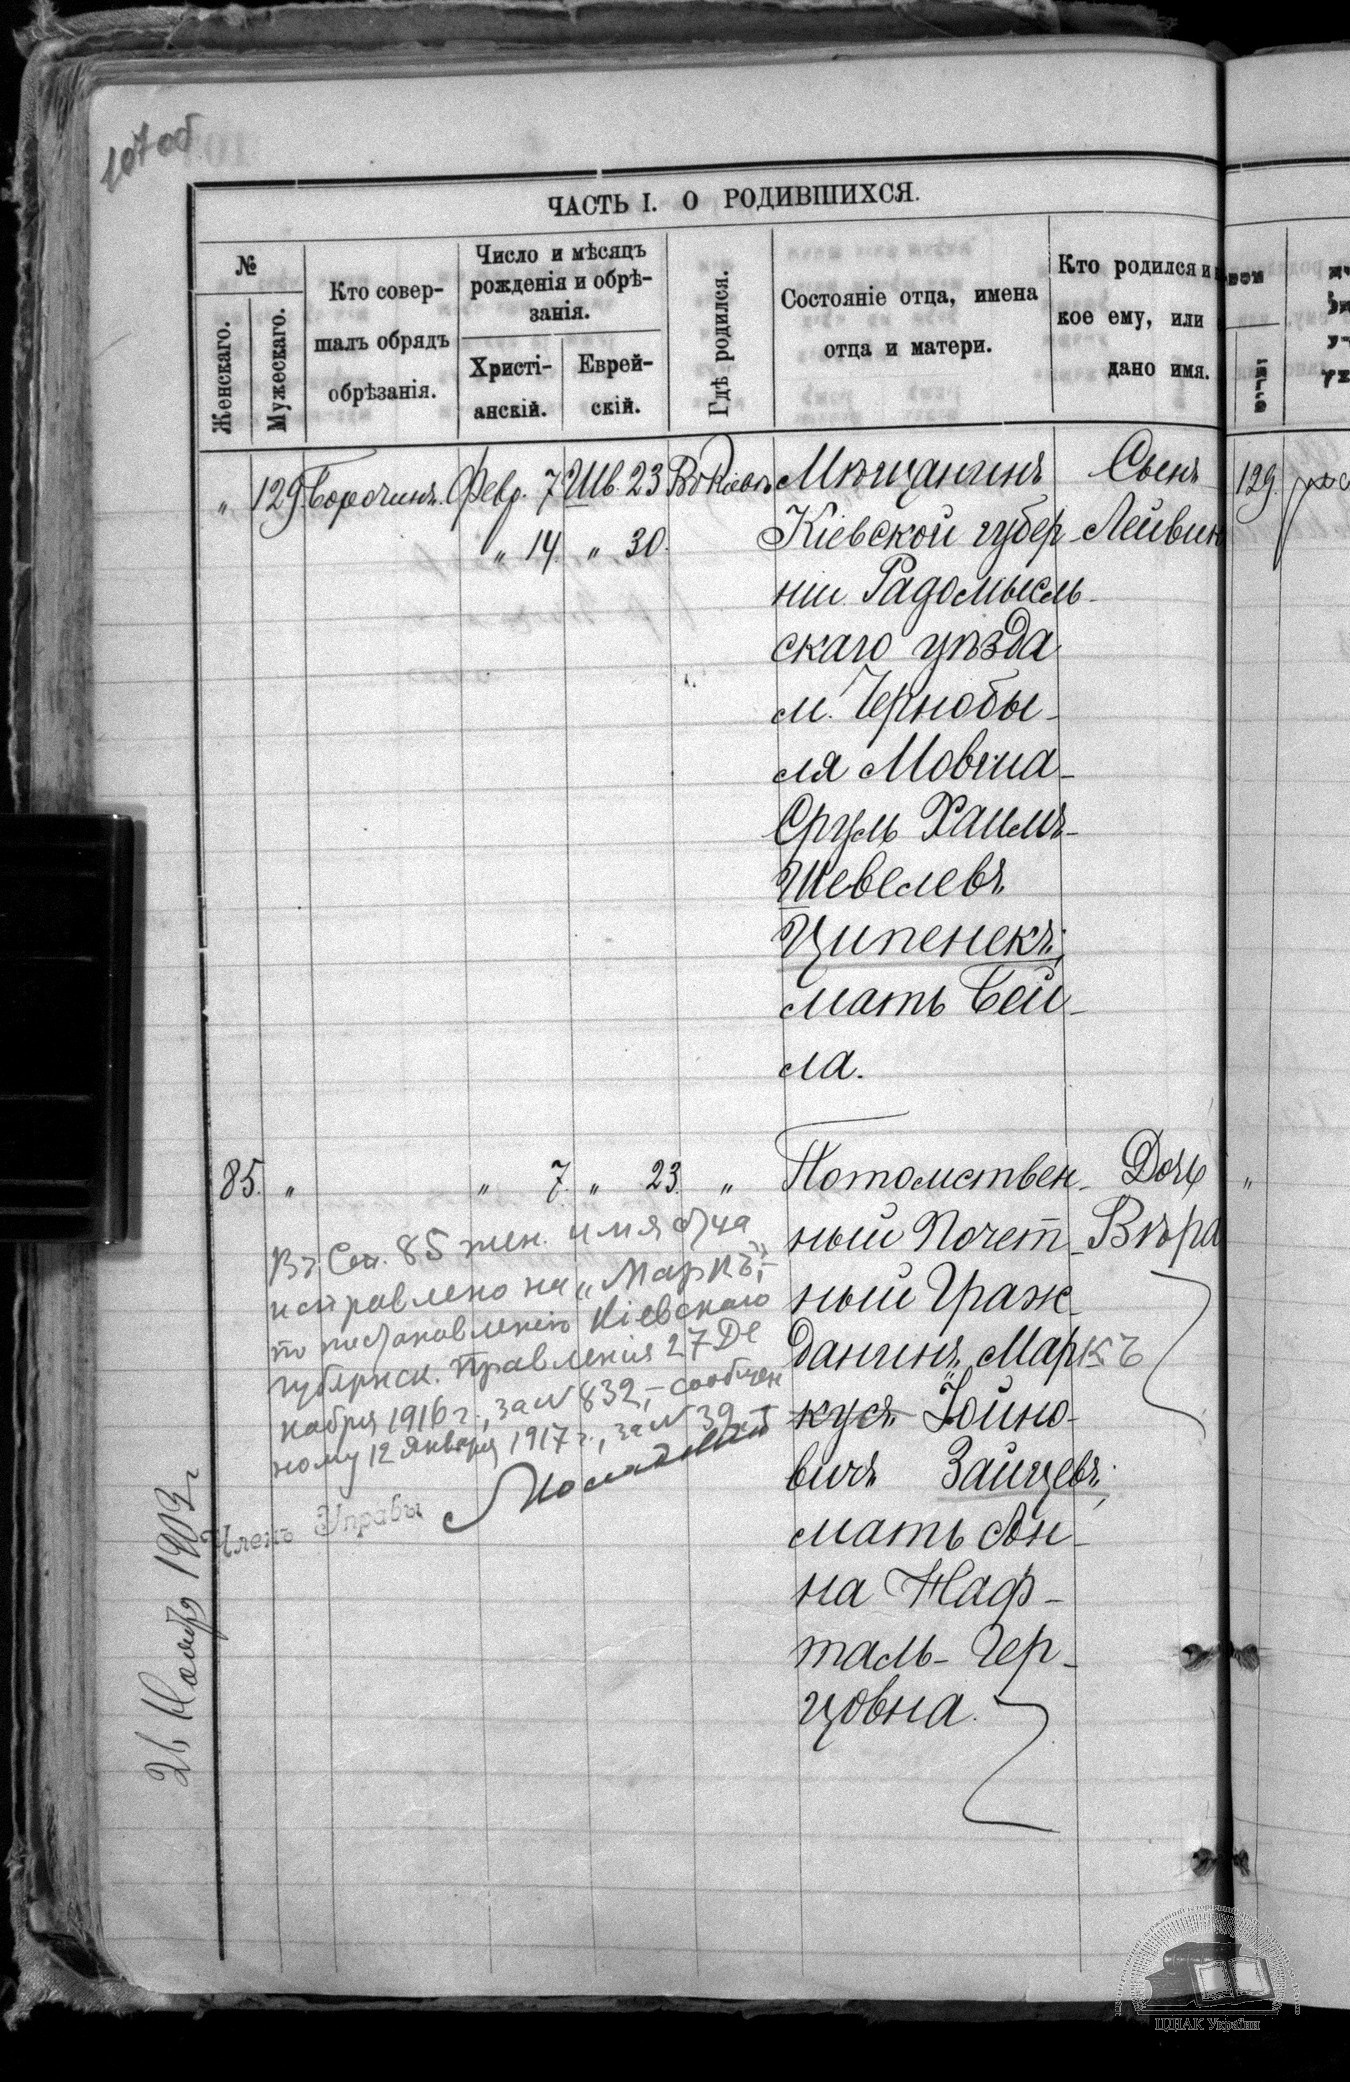 107 об
ЧАСТЬ I. О РОДИВШИХСЯ.
№
Женскаго.
Мужескаго.
Кто совер-
шалъ обрядъ
обрѣзанія.
Число и мѣсяцъ
рожденія и обрѣ-
занія.
Христі-
анскій.
Еврей-
скій.
Гдѣ родился.
Состояніе отца, имена
отца и матери.
Кто родился и
кое ему, или
дано имя.
„ 129. Борочинъ. Февр. 7. Шв. 23 Въ Кіевѣ Мѣщанинъ Сынъ
„ 14. „ 30. Кіевской губер- Лейвик
ніи Радомысль-
скаго уѣзда
м. Чернобы-
ля Мовша-
Сруль Хаимъ-
Шевелевъ
Ципенекъ;
мать Бей-
ла.
85. „ „ 7. „ 23. „ Потомствен- Дочь
ный Почет- Вѣра
ный Граж-
данинъ Маркъ
куся Іойно-
вичъ Зайцевъ;
мать Ан-
на Нафталь-Гер-
цовна.
Въ Ст. 85 жен. имя отца
исправлено на „Маркъ",-
по постановленію Кіевскаго
Губернск. Правленія 27 Де
кабря 1916 г., за № 832,- сообщен
ному 12 Января 1917 г., за № 39.-
Членъ Управы
26 Ноября 1903 г
129.
„
ЦДІАК України